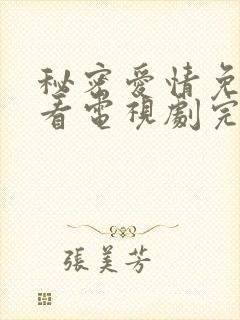 秘密愛情免
看電視劇完
張美芳